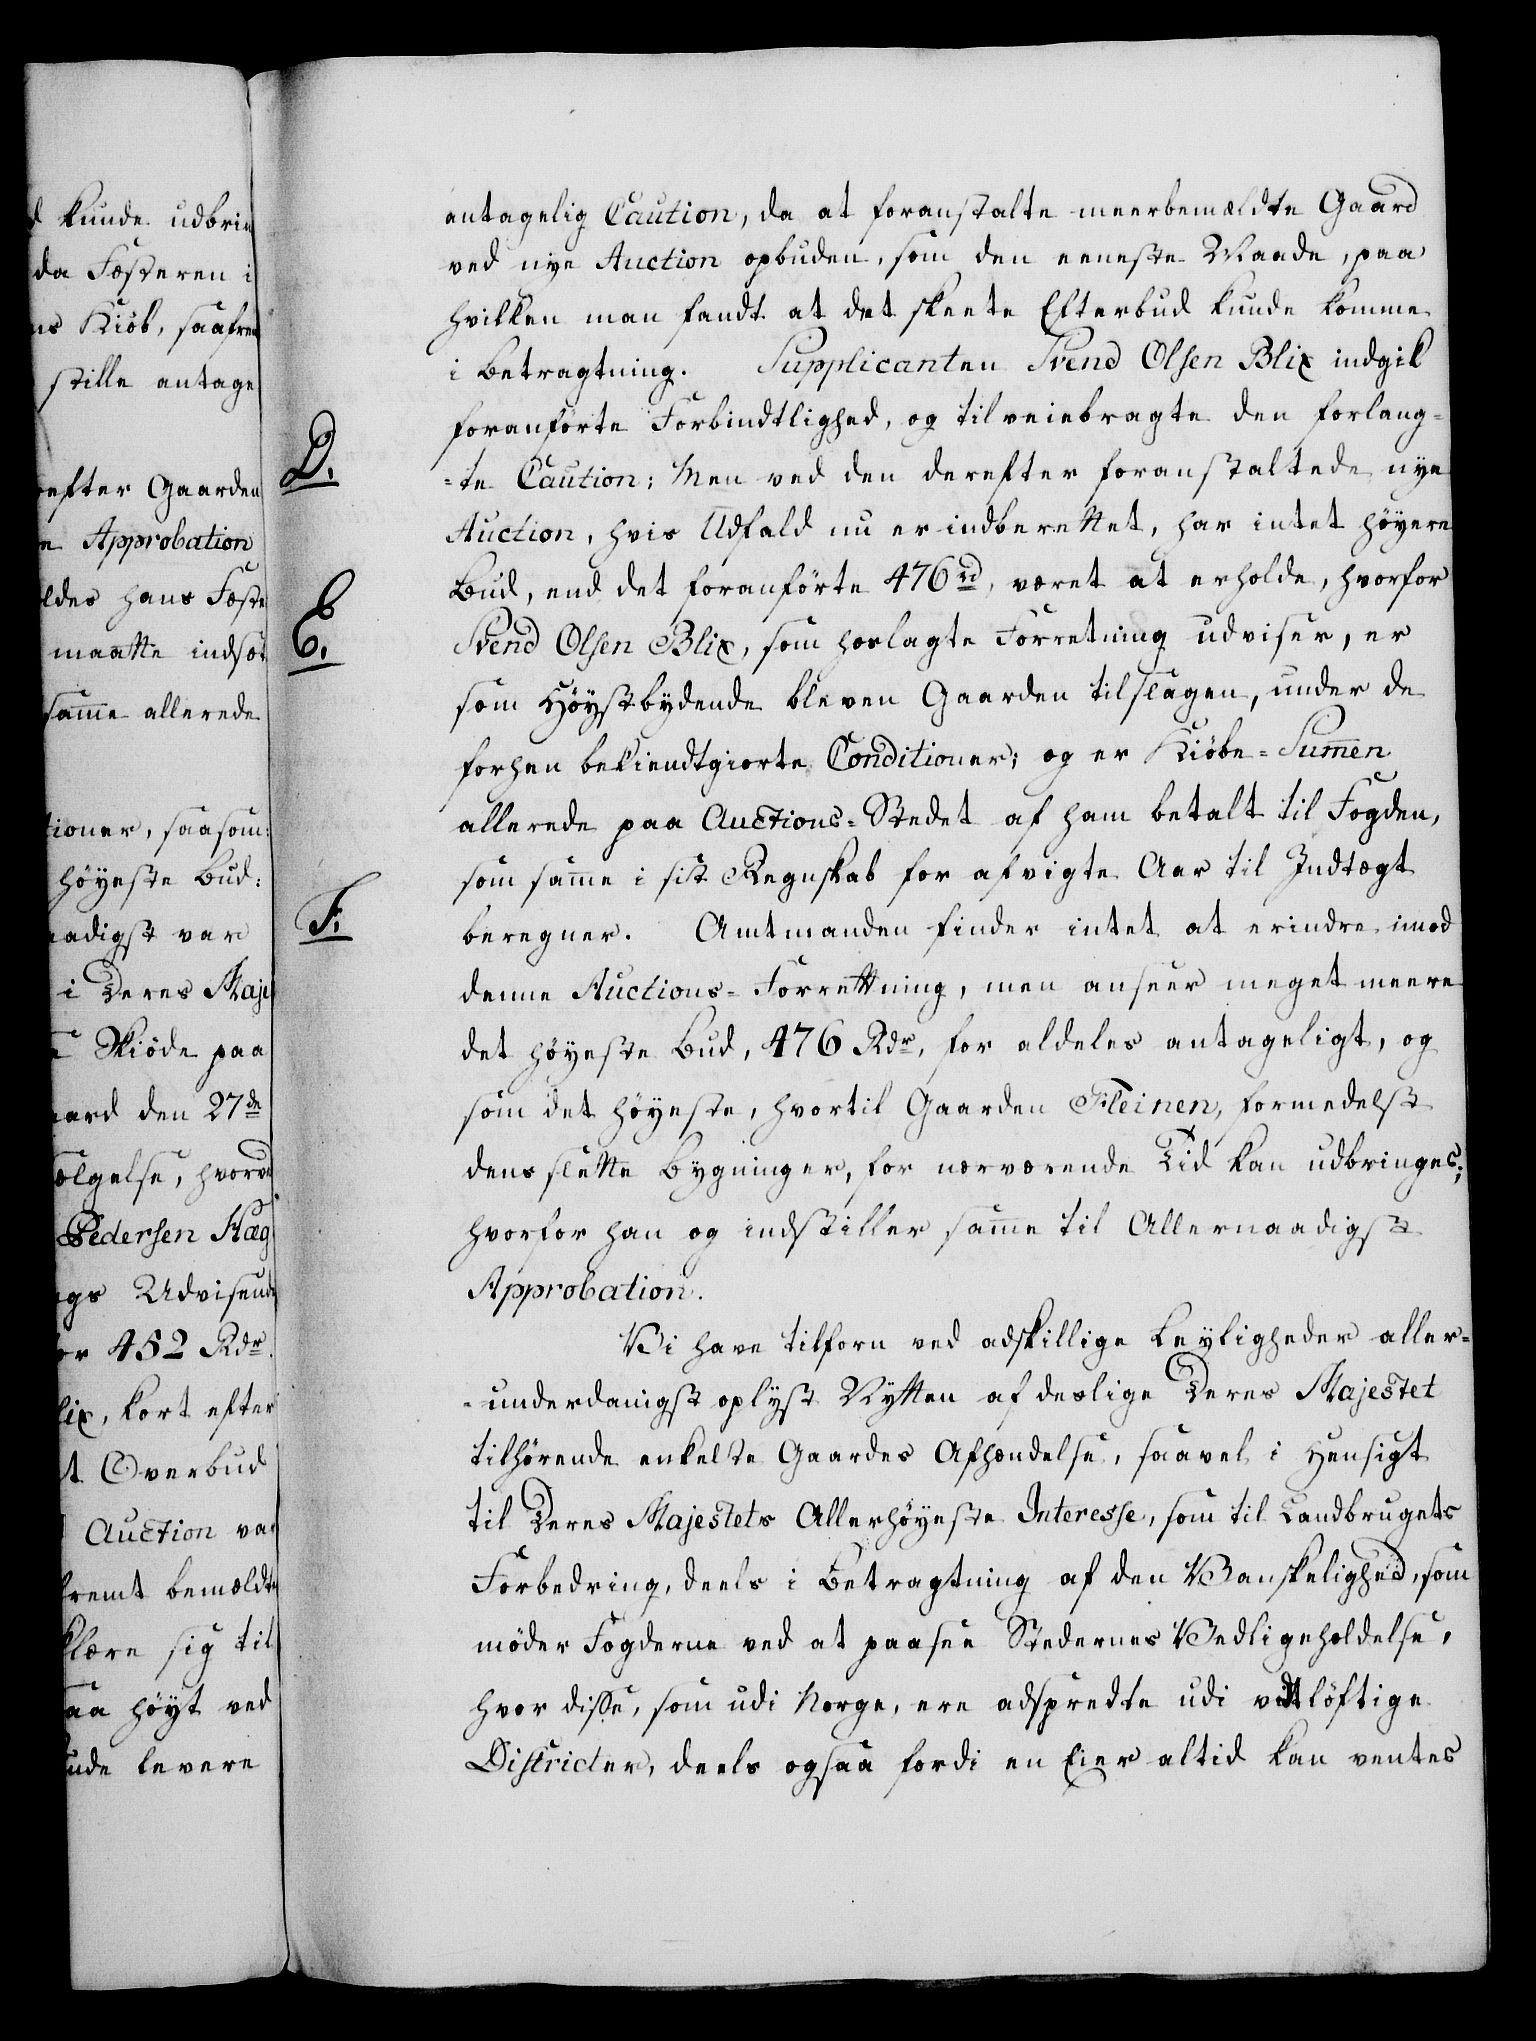 d kunde udbrin
da Fæsteren i
ns Kiöb, saafre
stille antage
efter Gaarden
e Approbation
ldes hans Fæste
maatte indsæt
sam̄e allerede
tioner, saasom:
höyeste Bud:
aadigst var
i Deres Maje
Skiöde paa
aard den 27de
ælgelse, hvorve
Pedersen Hæg
gs Udvisende
or 452 Rdr.
lix, kort efter
t Overbud
Auction var
fremt bemældte
klære sig til
aa höyt ved
ude levere
antagelig Caution, da at foranstalte meerbemældte Gaard
ved nye Auction opbuden, som den eeneste Maade, paa
hvilken man fandt at det skeete Efterbud kunde komme
i betragtning. Supplicanten Svend Olsen Blix indgik
foranförte Forbindtlighed, og tilveiebragte den forlang-
D.
-te Caution; Men ved den derefter foranstaltede nye
Auction, hvis Udfald nu er indberettet, har intet höyere
Bud, end det foranförte 476 rd, været at erholde, hvorfor
E.
Svend Olsen Blix, som hoslagte Forretning udviser, er
som Höystbydende bleven Gaarden tilslagen, under de
forhen bekiendtgiorte Conditioner; og er Kiöbe-Sum̄en
allerede paa Auctions-Stedet af ham betalt til Fogden,
som sam̄e i sit Regnskab for afvigte Aar til Indtægt
F.
beregner. Amtmanden finder intet at erindre imod
denne Auctions-Forrettning, men anseer meget meere
det höyeste Bud, 476 Rdr, for aldeles antageligt, og
som det höyeste, hvortil Gaarden Fleinen, formedelst
dens slette Bygninger, for nærværende Tid kan udbringes;
hvorfor han og indstiller sam̄e til Allernaadigst
Approbation.
Vi have tilforn ved adskillige Leyligheder aller-
-underdanigst oplyst Nytten af deslige Deres Majestet
tilhörende enkelte Gaardes Afhændelse, saavel i Hensigt
til Deres Majestets Allerhöyeste Interesse, som til Landbrugets
Forbedring, deels i Betragtning af den Vanskelighed, som
möder Fogderne ved at paasee Stedernes Vedligeholdelse,
hvor disse, som udi Norge, ere adspredte udi vidtlöftige
Districter, deels ogsaa fordi en Eier altid kan ventes